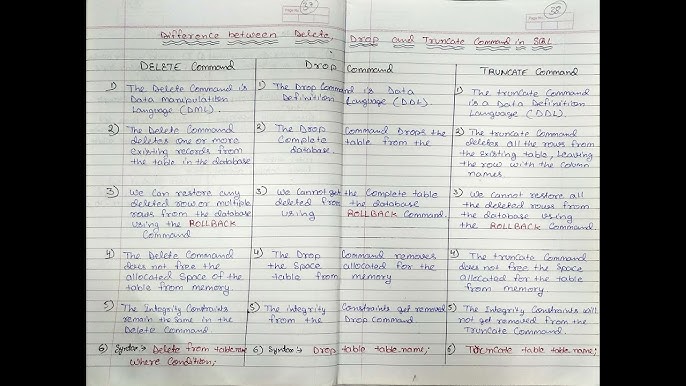 Page No. 37
Page No. 38
Difference between Delete, Drop and Truncate Command in SQL
DELETE Command
1) The Delete Command is
Data manipulation
Language (DML).
2) The Delete Command
deletes one or more
existing records from
the table in the database
3) We can restore any
deleted row or multiple
rows from the database
using the ROLLBACK
Command
4) The Delete Command
does not free the
allocated Space of the
table from memory.
5) The Integrity Constraints
remain the same in the
Delete Command
6) Syntax:- Delete from tablename
where Condition;
Drop Command
1) The Drop Command is Data
Definition Language (DDL).
2) The Drop Command Drops the
Complete table from the
database.
3) We Cannot get the Complete table
deleted from the database
using ROLLBACK Command.
4) The Drop Command removes
the Space allocated for the
table from memory
5) The integrity Constraints get removed
from the Drop Command.
6) Syntax:- Drop table table-name;
TRUNCATE Command
1) The truncate Command
is a Data Definition
Language (DDL).
2) The truncate Command
deletes all the rows from
the existing table, leaving
the row with the Column
names.
3) We cannot restore all
the deleted rows from
the database using
the ROLLBACK Command.
4) The truncate Command
does not free the Space
allocated for the table
from memory
5) The Integrity Constraints will
not get removed from the
Truncate Command.
6) Truncate table table name;